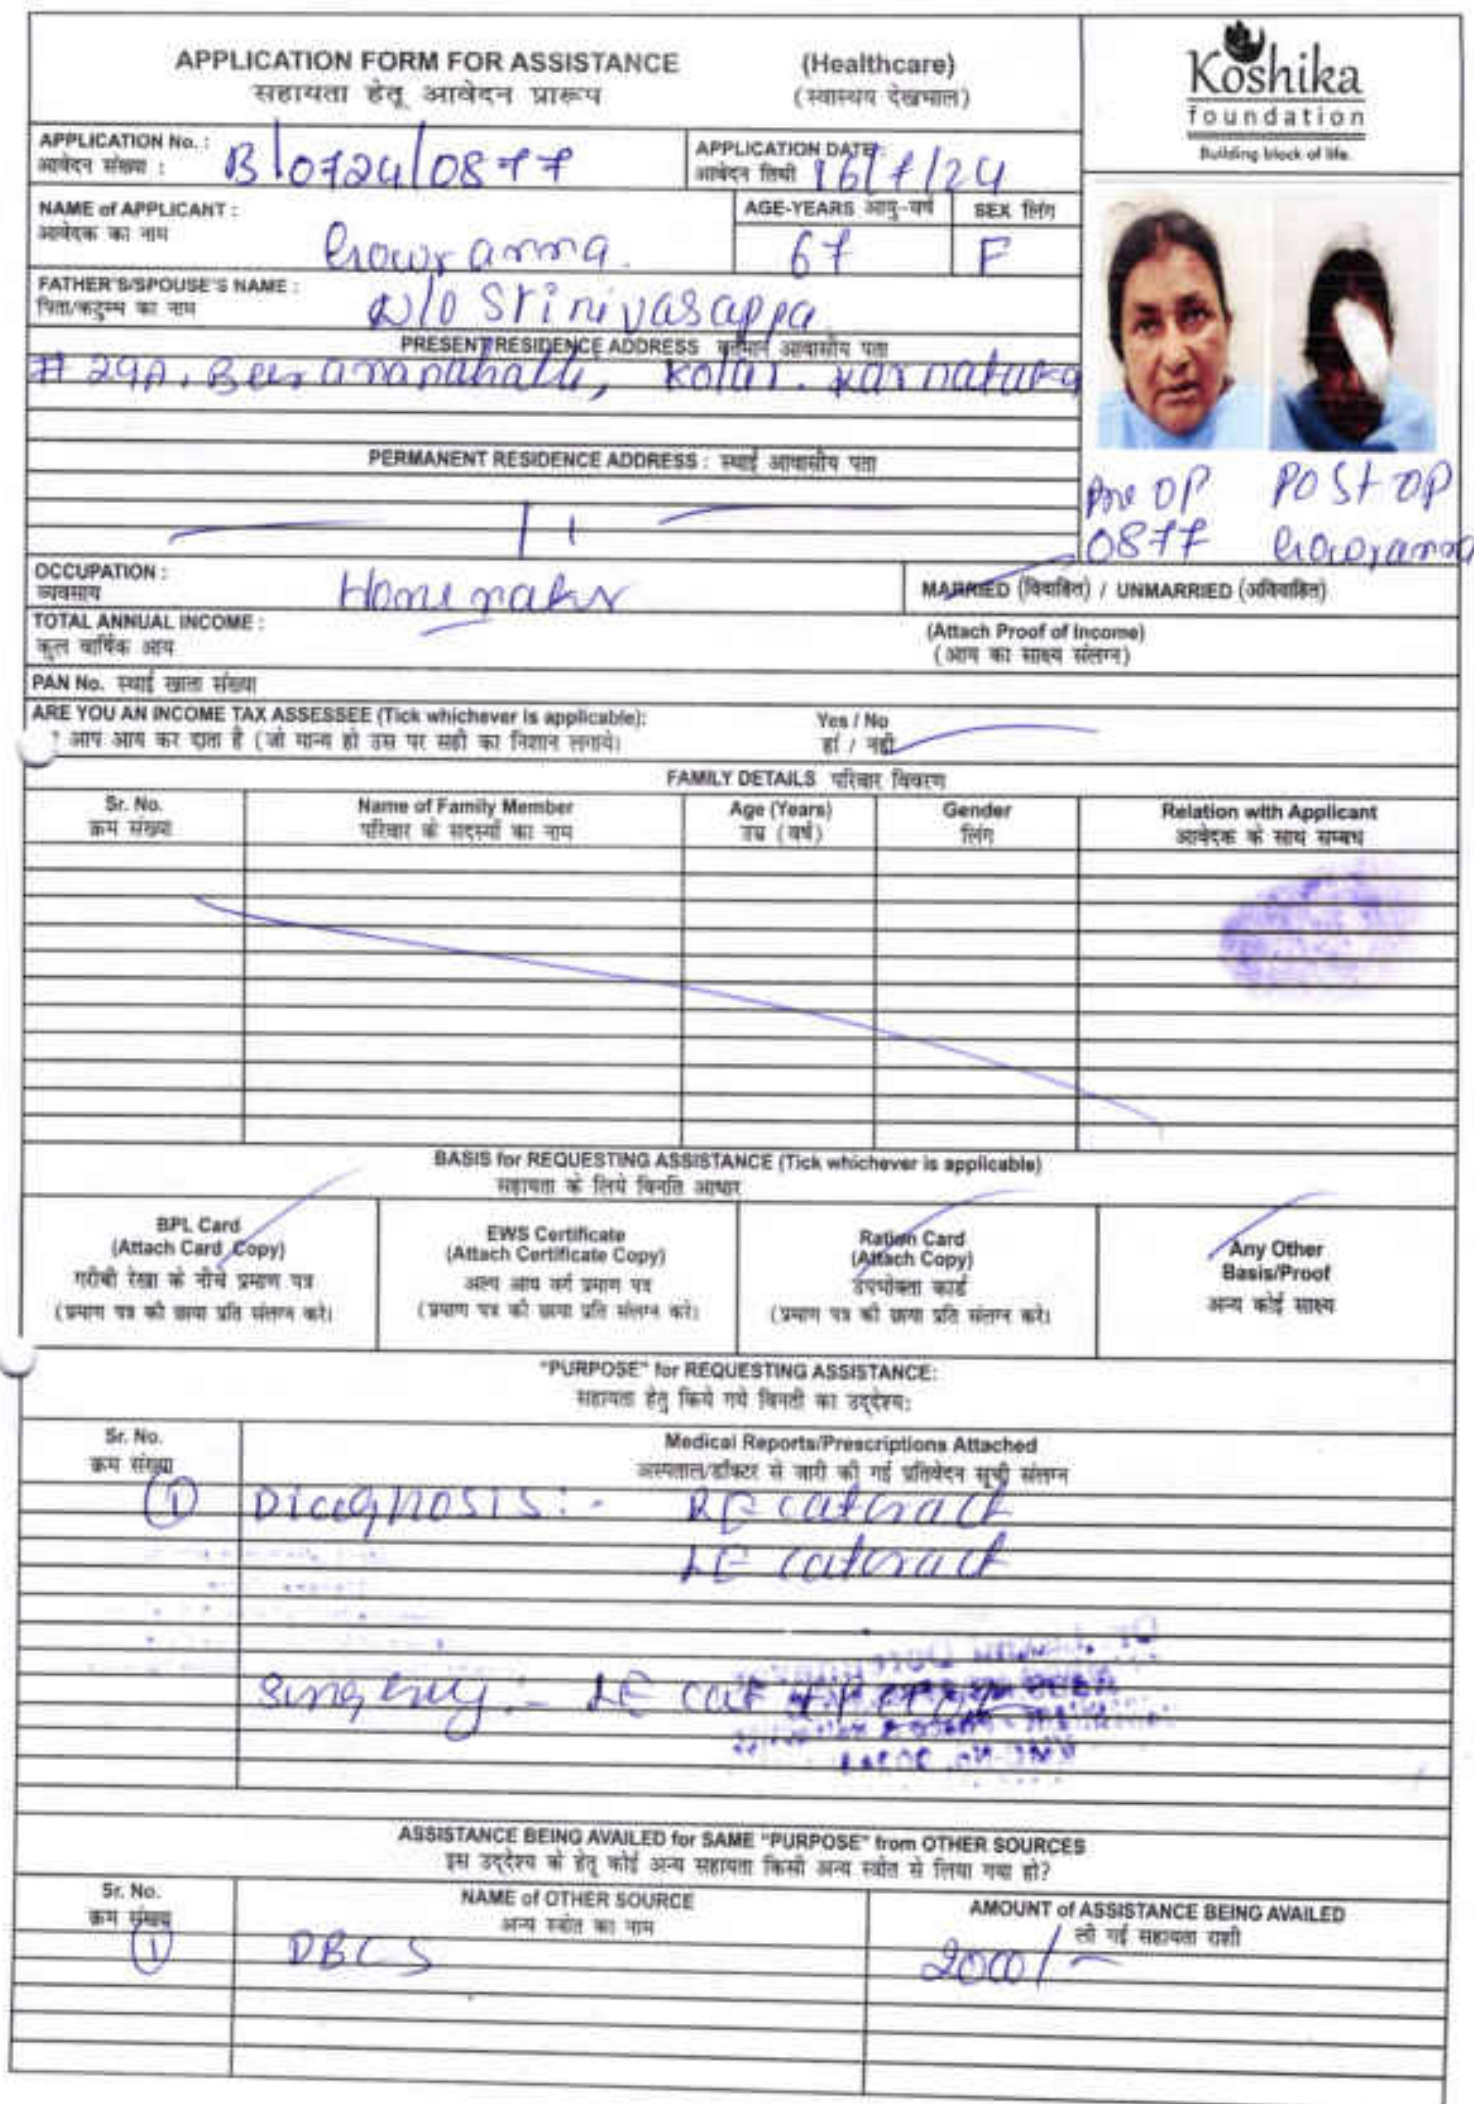 APPLICATION FORM FOR ASSISTANCE (Healthcare)
सहायता हेतू आवेदन प्रारूप (स्वास्थय देखभाल)
Koshika
foundation
Building block of life.
APPLICATION No. :
आवेदन संख्या : B/0724/0877
APPLICATION DATE :
आवेदन तिथी 16/7/24
NAME of APPLICANT :
आवेदक का नाम Gowramma.
AGE-YEARS आयु-वर्ष SEX लिंग
67 F
FATHER'S/SPOUSE'S NAME :
पिता/कटुम्ब का नाम W/O Srinivasappa
PRESENT RESIDENCE ADDRESS वर्तमान आवासीय पता
# 29A, Kolar. Karnataka
PERMANENT RESIDENCE ADDRESS : स्थाई आवासीय पता
Pre OP Post OP
0877 Gowramma
OCCUPATION :
व्यवसाय Homemaker
MARRIED (विवाहित) / UNMARRIED (अविवाहित)
TOTAL ANNUAL INCOME :
कुल वार्षिक आय
(Attach Proof of Income)
(आय का साक्ष्य संलग्न)
PAN No. स्थाई खाता संख्या
ARE YOU AN INCOME TAX ASSESSEE (Tick whichever is applicable): Yes / No
आप आय कर दाता है (जो मान्य हो उस पर सही का निशान लगाये। हां / नही
FAMILY DETAILS परिवार विवरण
Sr. No. Name of Family Member Age (Years) Gender Relation with Applicant
क्रम संख्या परिवार के सदस्यों का नाम उम्र (वर्ष) लिंग आवेदक के साथ सम्बध
BASIS for REQUESTING ASSISTANCE (Tick whichever is applicable)
सहायता के लिये विनति आधार
BPL Card
(Attach Card Copy)
गरीबी रेखा के नीचे प्रमाण पत्र
(प्रमाण पत्र की छाया प्रति संलग्न करे।
EWS Certificate
(Attach Certificate Copy)
अल्प आय वर्ग प्रमाण पत्र
(प्रमाण पत्र की छाया प्रति संलग्न करे।
Ration Card
(Attach Copy)
उपभोक्ता कार्ड
(प्रमाण पत्र की छाया प्रति संलग्न करे।
Any Other
Basis/Proof
अन्य कोई साक्ष्य
"PURPOSE" for REQUESTING ASSISTANCE:
सहायता हेतु किये गये विनती का उद्देश्य:
Sr. No. Medical Reports/Prescriptions Attached
क्रम संख्या अस्पताल/डॉक्टर से जारी की गई प्रतिवेदन सूची संलग्न
1 Diagnosis:- RE cataract
LE cataract
Surgery:- LE cat
ASSISTANCE BEING AVAILED for SAME "PURPOSE" from OTHER SOURCES
इस उद्देश्य के हेतू कोई अन्य सहायता किसी अन्य स्त्रोत से लिया गया हो?
Sr. No. NAME of OTHER SOURCE AMOUNT of ASSISTANCE BEING AVAILED
क्रम संख्या अन्य स्त्रोत का नाम ली गई सहायता राशी
1 DBCS 2000/-